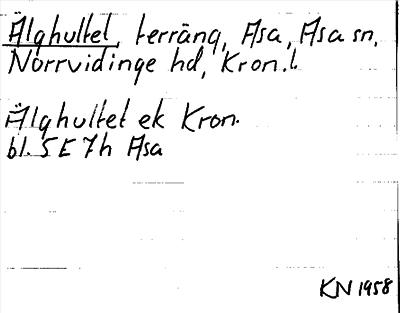 Älghultet, terräng, Asa, Asa sn,
Norrvidinge hd, Kron.l.
Älghultet ek Kron.
bl. 5 E 7h Asa
KN 1958